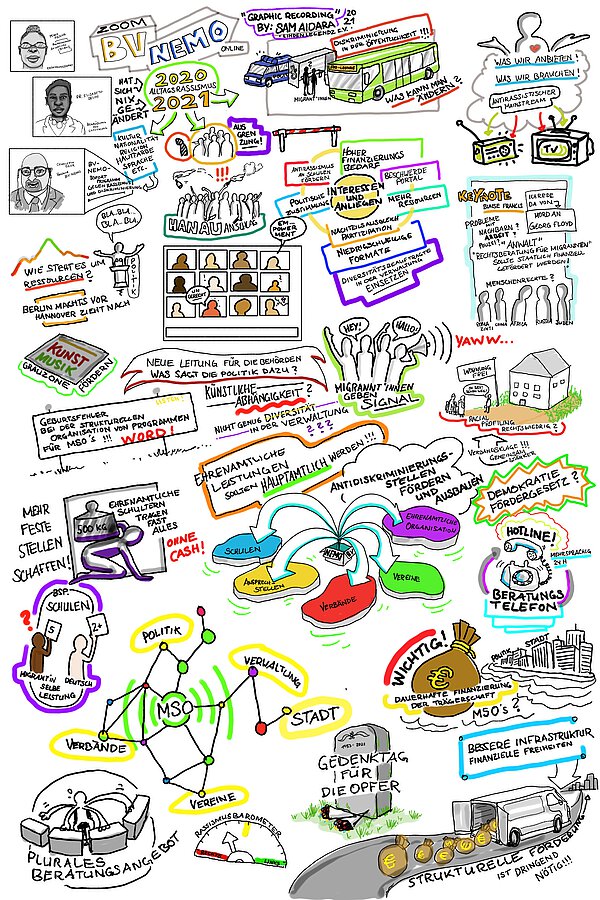 ZOOM
BV NEMO
ONLINE
"GRAPHIC RECORDING" 2021
BY: SAM AIDARA
EINDENLEGENDZ E.V.
DISKRIMINIERUNG
IN DER ÖFFENTLICHKEIT !!!
MIGRANT*INNEN
WAS KANN MAN
ÄNDERN?
WAS WIR ANBIETEN!
WAS WIR BRAUCHEN!
ANTIRASSISTISCHER
MAINSTREAM
TV
HAT
SICH
NIX
GE-
ÄNDERT
2020
ALLTAGSRASSISMUS
2021
KULTUR
NATIONALITÄT
RELIGION
HAUTFARBE
SPRACHE
ETC.
AUS
GREN
ZUNG!
BV-
NEMO-
GEGEN RASSISMUS
UND DISKRIMINIERUNG
!!!
HANAU ANSCHLAG
ANTIRASSISMUS
AN SCHULEN
FÖRDERN
HOHER
FINANZIERUNGS
BEDARF
BESCHWERDE
PORTAL
POLITISCHE
ZUSTIMMUNG
INTERESSEN
UND
ANLIEGEN
MEHR
RESSOURCEN
NACHTEILAUSGLEICH
PARTIZIPATION
NIEDRIGSCHWELLIGE
FORMATE
DIVERSITÄTSBEAUFTRAGTE
IN DER VERWALTUNG
EINSETZEN
KEYNOTE
HAREPE
DA VON?
BIASE FRANCIS
MORD AN
GEORG FLOYD
PROBLEME
MIT
NACHBARN?
ARBEIT?
POLIZEI?
"ANWALT"
"RECHTSBERATUNG FÜR MIGRANTEN"
SOLLTE STAATLICH FINANZIELL
GEFÖRDERT WERDEN!
MENSCHENRECHTE?
ROMA
SINTI
CHINA
AFRICA
RUSSIA
JUDEN
BLA.. BLA..
BLA.. BLA..
POLITIK
WIE STEHT ES UM
RESSOURCEN?
BERLIN MACHTS VOR
HANNOVER ZIEHT NACH
EM-
POWER
MENT
UN
GERECHT
KUNST
MUSIK
GRAUZONE FÖRDERN
NEUE LEITUNG FÜR DIE BEHÖRDEN
WAS SAGT DIE POLITIK DAZU?
KÜNSTLICHE-
ABHÄNGIGKEIT?
NICHT GENUG DIVERSITÄT
IN DER VERWALTUNG
? ? ?
HEY!
HALLO!
MIGRANT*INNEN
GEBEN
SIGNAL
YAWW...
WOHNUNG
FREI
RACIAL
PROFILING
RECHTSWIDRIG?
VERBANDSKLAGE !!!
GEMEINSAM
STÄRKER
GEBURTSFEHLER
BEI DER STRUKTURELLEN
ORGANISATION VON PROGRAMMEN
FÜR MSO'S !!!
WORD!
EHRENAMTLICHE
LEISTUNGEN
SOLLEN HAUPTAMTLICH WERDEN!!!
ANTIDISKRIMINIERUNGS-
STELLEN
FÖRDERN
UND
AUSBAUEN
DEMOKRATIE
FÖRDERGESETZ?
MEHR
FESTE
STELLEN
SCHAFFEN!
500 KG
EHRENAMTLICHE
SCHULTERN
TRAGEN
FAST
ALLES
OHNE
CASH!
EHRENAMTLICHE
ORGANISATION
SCHULEN
ANSPRECH
STELLEN
VERBÄNDE
VEREINE
HOTLINE!
MEHRSPRACHIG
24 H
BERATUNGS
TELEFON
BSP.
SCHULEN
?
5
2+
MIGRANT*IN
DEUTSCH
SELBE
LEISTUNG
POLITIK
VERWALTUNG
MSO
STADT
VERBÄNDE
VEREINE
WICHTIG!
€
DAUERHAFTE FINANZIERUNG
DER TRÄGERSCHAFT
MSO'S?
POLITIK
STADT
1953 - 2021
GEDENKTAG
FÜR
DIE OPFER
BESSERE INFRASTRUKTUR
FINANZIELLE FREIHEITEN
PLURALES
BERATUNGSANGEBOT
RASSISMUSBAROMETER
STRUKTURELLE FÖRDERUNG
IST DRINGEND
NÖTIG!!!